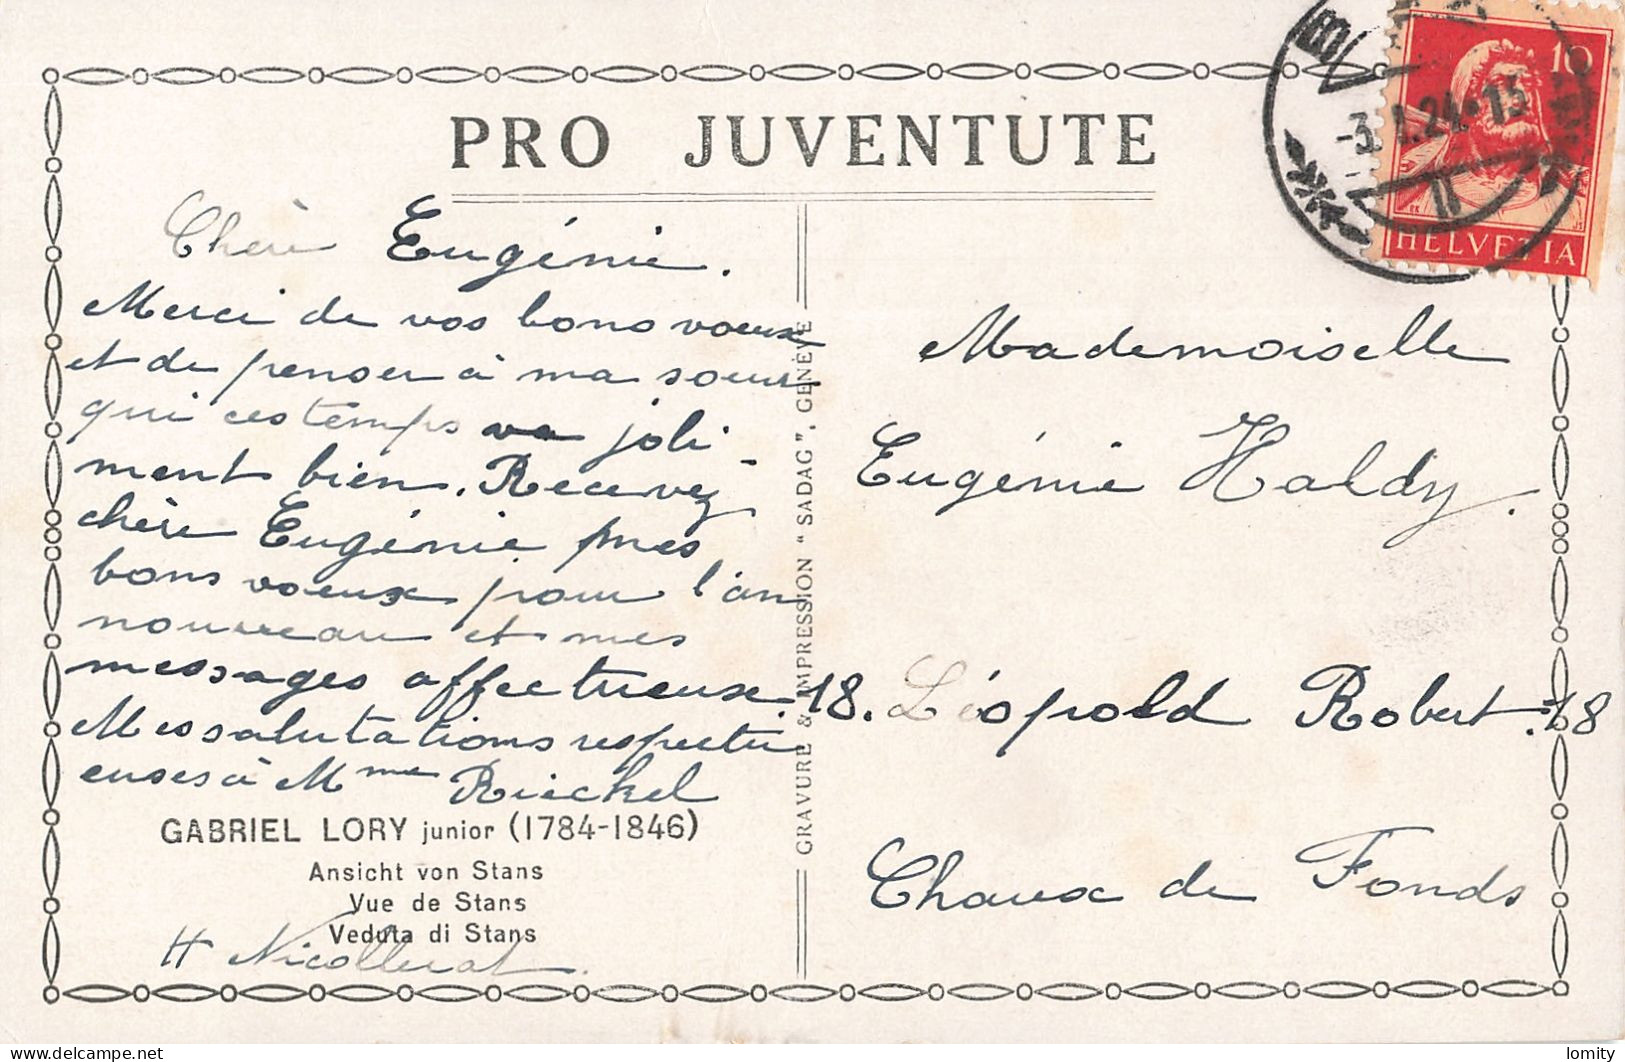 PRO JUVENTUTE
10
-3.I.24.-13
II
HELVETIA
Chère Eugénie.
Merci de vos bons voeux
et de penser à ma soeur
qui ces temps va joli-
ment bien. Recevez
chère Eugénie mes
bons voeux pour l'an
nouveau et mes
messages affectueux
Mes salutations respectu
euses à Mme Rieckel
GABRIEL LORY junior (1784-1846)
Ansicht von Stans
Vue de Stans
Veduta di Stans
H Nicollerat.
GRAVURE & IMPRESSION "SADAG", GENÈVE
Mademoiselle
Eugénie Haldy.
18. Léopold Robert. 18
Chaux de Fonds
lomity